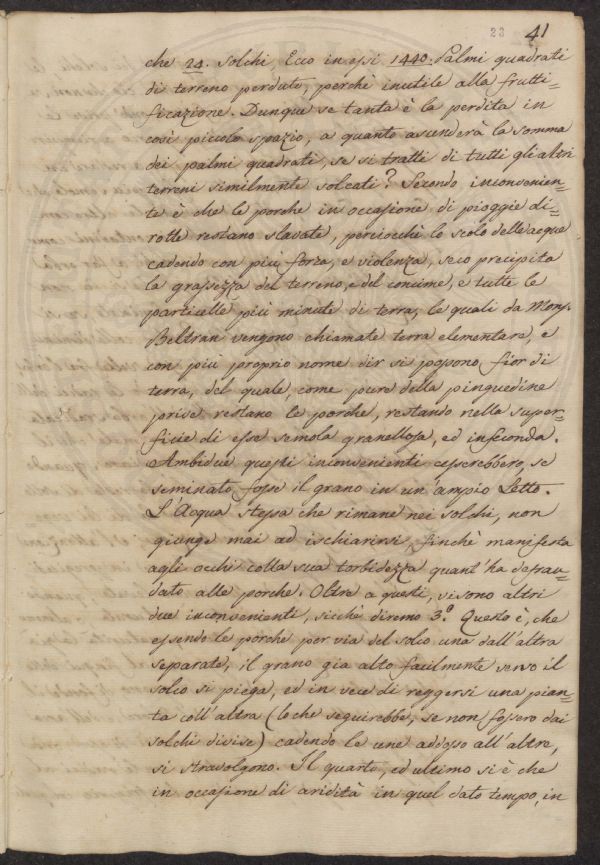 23 41
che 24. solchi, Ecco in essi 1440. Palmi quadrati
di terreno perduto, perchè inutile alla frutti=
ficazione. Dunque se tanta è la perdita in
così piccolo spazio, a quanto ascenderà la somma
dei palmi quadrati, se si tratti di tutti gli altri
terreni similmente solcati? Secondo inconvenien=
te è che le porche in occasione di pioggie di=
rotte restano slavate, perciocchè lo scolo delle acque
cadendo con più forza, e violenza, seco precipita
la grassezza del terreno, e del concime, e tutte le
particelle più minute di terra, le quali da Mons.
Beltran vengono chiamate terra elementare, e
con più proprio nome dir si possono fior di
terra, del quale, come pure della pinguedine
prive restano le porche, restando nella super=
ficie di essa semola granellosa, ed infeconda.
Ambidue questi inconvenienti cesserebbero, se
seminato fosse il grano in un'ampio Letto.
L'Acqua stessa che rimane nei solchi, non
giunge mai ad ischiarirsi, finchè manifesta
agli occhi colla sua torbidezza quant'ha defrau=
dato alle porche. Oltre a questi, vi sono altri
due inconvenienti, sicchè diremo 3.º Questo è, che
essendo le porche per via del solco una dall'altra
separate, il grano gia alto facilmente verso il
solco si piega, ed in vece di reggersi una pian=
ta coll'altra (lo che seguirebbe, se non fossero dai
solchi divise) cadendo le une addosso all'altre,
si stravolgono. Il quarto, ed ultimo si è che
in occasione di aridità in quel dato tempo, in